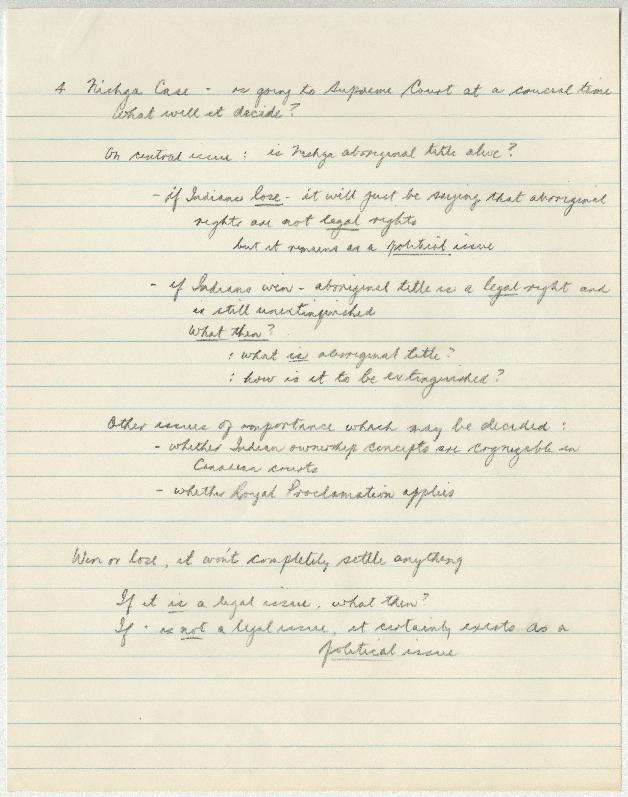 4 Nishga Case - is going to Supreme Court at a crucial time
What will it decide?
On central issue : is Nishga aboriginal title alive?
- if Indians lose - it will just be saying that aboriginal
rights are not legal rights
but it remains as a political issue
- if Indians win - aboriginal title is a legal right and
is still unextinguished
What then?
: what is aboriginal title?
: how is it to be extinguished?
Other issues of importance which may be decided :
- whether Indian ownership concepts are cognizable in
Canadian courts
- whether Royal Proclamation applies
Win or lose, it won't completely settle anything
If it is a legal issue, what then?
If " is not a legal issue, it certainly exists as a
political issue